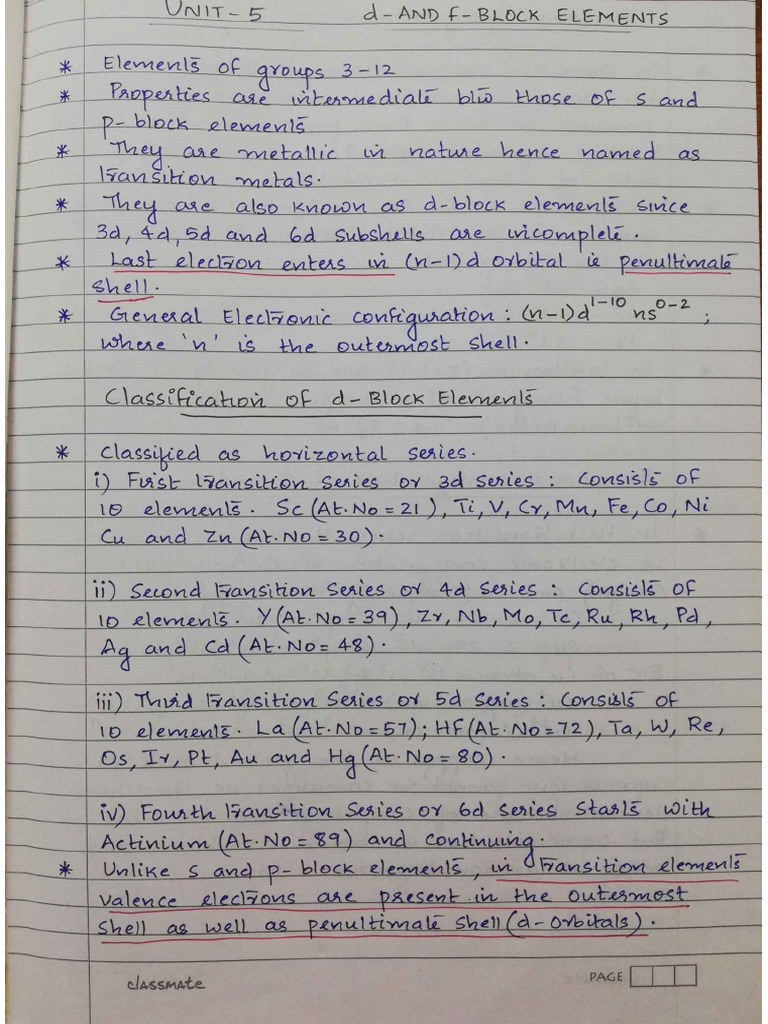 UNIT-5 d-AND f-BLOCK ELEMENTS
* Elements of groups 3-12
* Properties are intermediate b/w those of s and
p-block elements
* They are metallic in nature hence named as
transition metals.
* They are also known as d-block elements since
3d, 4d, 5d and 6d subshells are incomplete.
* Last electron enters in (n-1)d orbital ie penultimate
shell.
* General Electronic configuration: (n-1)d¹⁻¹⁰ ns⁰⁻²;
where 'n' is the outermost shell.
Classification of d-Block Elements
* Classified as horizontal series.
i) First transition series or 3d series: Consists of
10 elements. Sc(At.No=21), Ti, V, Cr, Mn, Fe, Co, Ni
Cu and Zn(At.No=30).
ii) Second transition series or 4d series: Consists of
10 elements. Y(At.No=39), Zr, Nb, Mo, Tc, Ru, Rh, Pd,
Ag and Cd(At.No=48).
iii) Third transition series or 5d series: Consists of
10 elements. La(At.No=57); Hf(At.No=72), Ta, W, Re,
Os, Ir, Pt, Au and Hg(At.No=80).
iv) Fourth transition series or 6d series starts with
Actinium(At.No=89) and continuing.
* Unlike s and p-block elements, in transition elements
valence electrons are present in the outermost
shell as well as penultimate shell(d-orbitals).
classmate PAGE